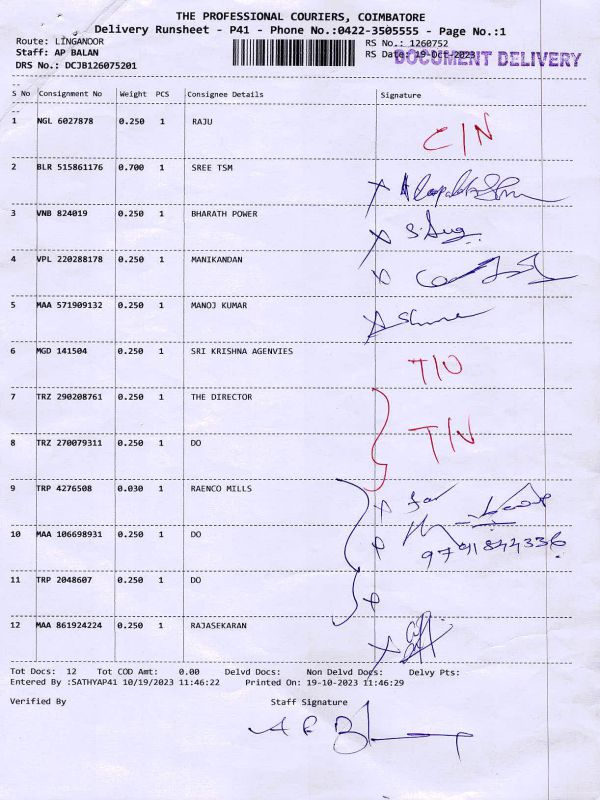 THE PROFESSIONAL COURIERS, COIMBATORE
Delivery Runsheet - P41 - Phone No.:0422-3505555 - Page No.:1
Route: LINGANOOR RS No.: 1260752
Staff: AP BALAN RS Date: 19-Oct-2023
DOCUMENT DELIVERY
DRS No.: DCJB126075201
S No Consignment No Weight PCS Consignee Details Signature
1 NGL 6027878 0.250 1 RAJU C/N
2 BLR 515861176 0.700 1 SREE TSM
3 VNB 824019 0.250 1 BHARATH POWER
4 VPL 220288178 0.250 1 MANIKANDAN
5 MAA 571909132 0.250 1 MANOJ KUMAR
6 MGD 141504 0.250 1 SRI KRISHNA AGENVIES
7 TRZ 290208761 0.250 1 THE DIRECTOR
8 TRZ 270079311 0.250 1 DO T/N
9 TRP 4276508 0.030 1 RAENCO MILLS for
10 MAA 106698931 0.250 1 DO 9791844336
11 TRP 2048607 0.250 1 DO
12 MAA 861924224 0.250 1 RAJASEKARAN
Tot Docs: 12 Tot COD Amt: 0.00 Delvd Docs: Non Delvd Docs: Delvy Pts:
Entered By :SATHYAP41 10/19/2023 11:46:22 Printed On: 19-10-2023 11:46:29
Verified By Staff Signature